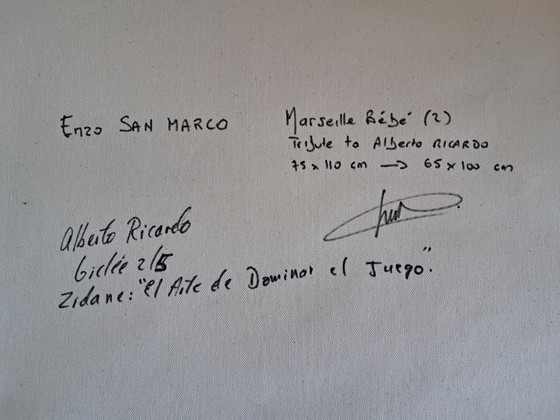 Enzo SAN MARCO
Marseille Bébé (2)
Tribute to Alberto RICARDO
75 x 110 cm → 65 x 100 cm
Alberto Ricardo
Giclée 2/5
Zidane: "El Arte de Dominar el Juego".